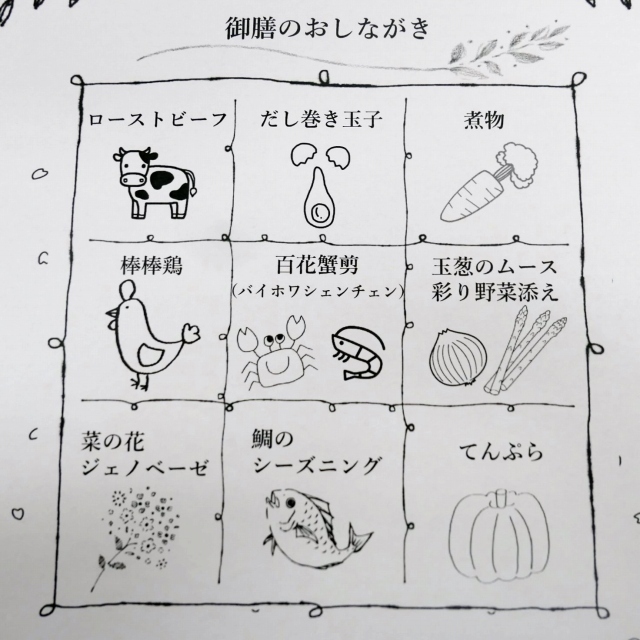 御膳のおしながき
ローストビーフ
だし巻き玉子
煮物
棒棒鶏
百花蟹剪
(バイホワシェンチェン)
玉葱のムース
彩り野菜添え
菜の花
ジェノベーゼ
鯛の
シーズニング
てんぷら